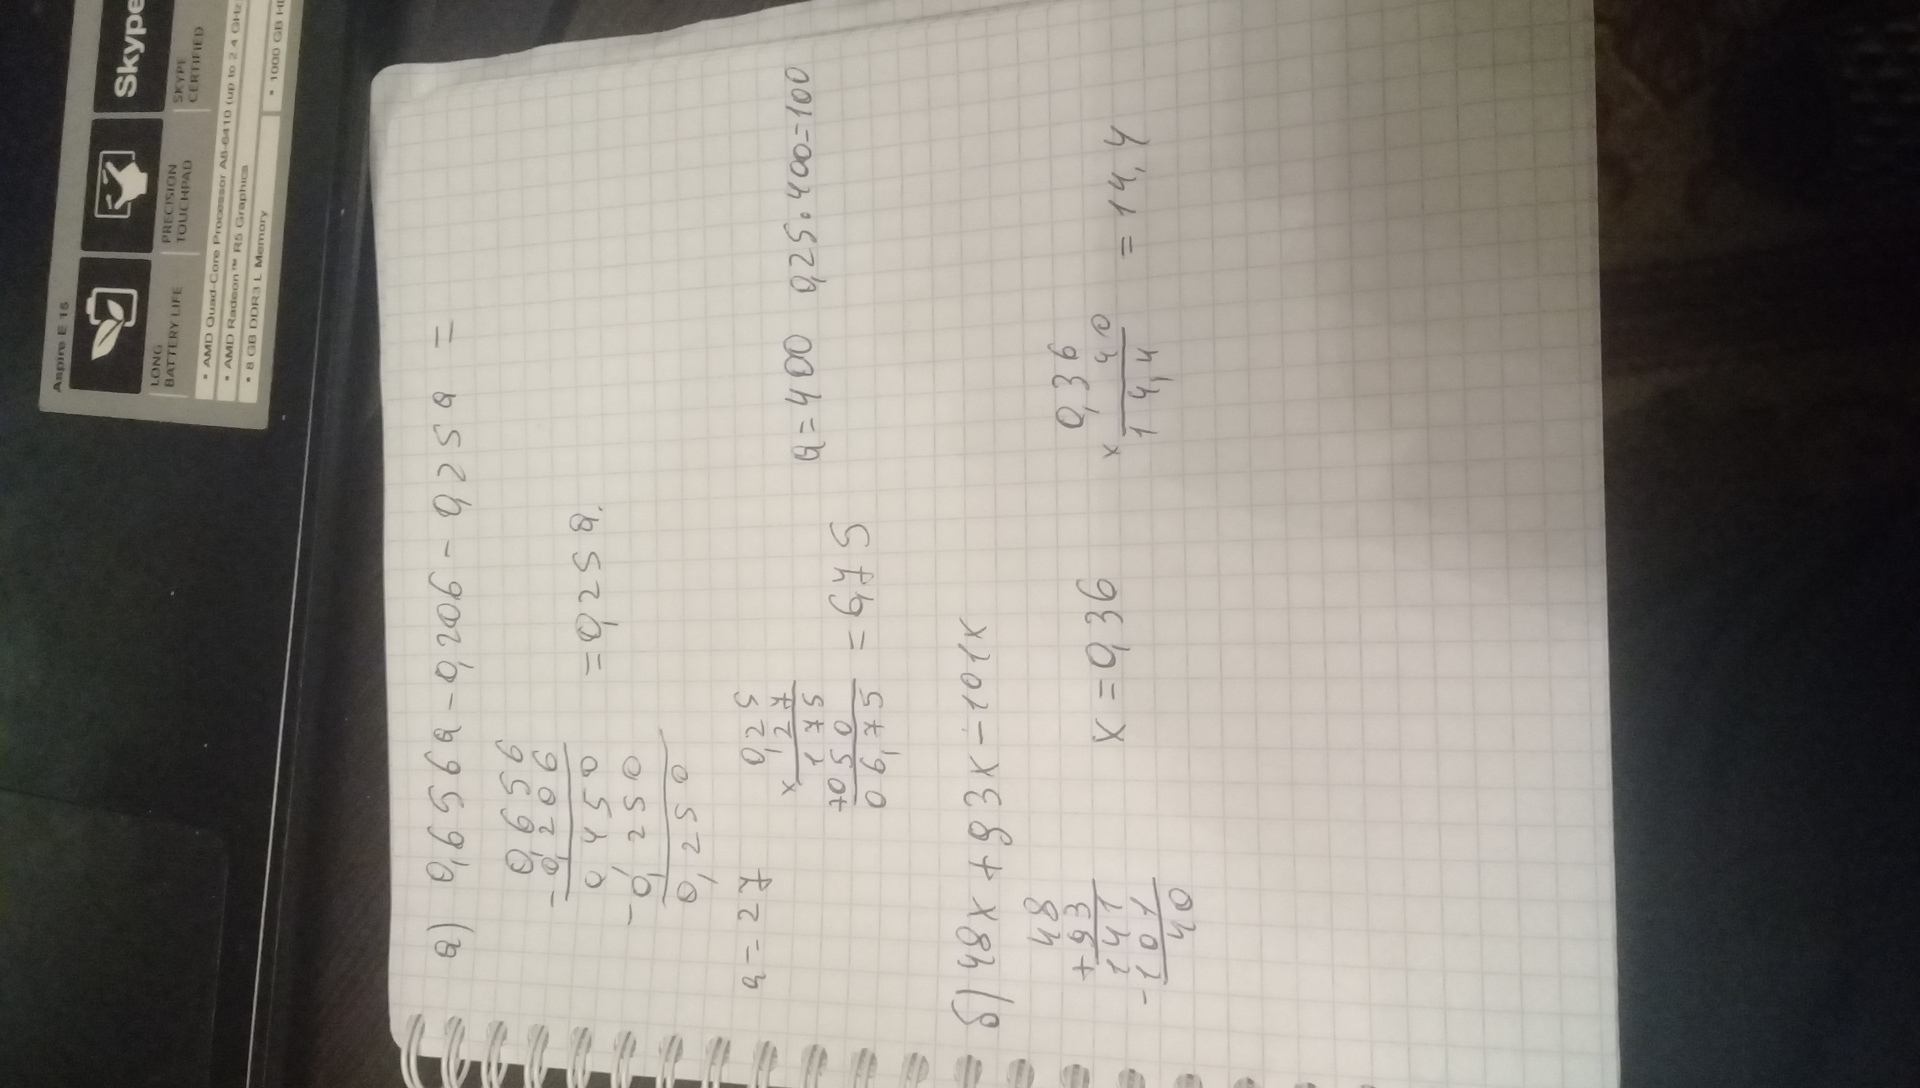 Aspire E 15
Skype
LONG
BATTERY LIFE
PRECISION
TOUCHPAD
SKYPE
CERTIFIED
• AMD Quad-Core Processor A8-6410 (up to 2.4 GHz
• AMD Radeon™ R5 Graphics
• 8 GB DDR3 L Memory
• 1000 GB
а) 0,656a-0,206-0,25a=
0,656
-0,206
0450
-0,250
0,250
=0,25a.
a=27
0,25
x 27
175
+050
06,75
=6,75
a=400 0,25.400=100
б) 48x+93x-101x
48
+93
141
-101
40
x=0,36
0,36
x 40
14,4
=14,4